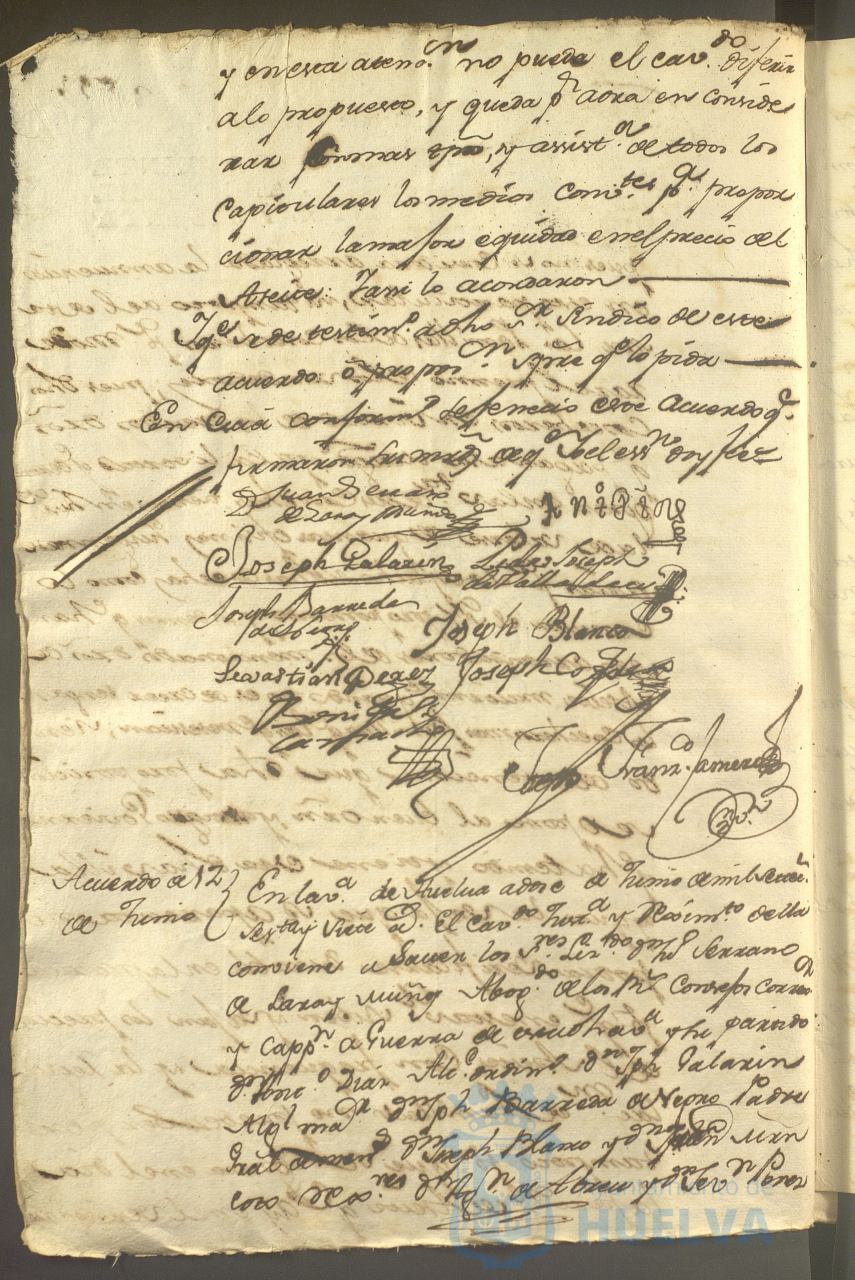 y en esta atenon. no puede el cavdo. diferir
a lo propuesto, y queda pr. aora en conside
rar con mas tpo, y assista. de todos los
capitulares los medios combtes. pa. qe. propor
cionar la maior equidad en el precio del
Aceite: Y assi lo acordaron
Y qe. se de testimo. a dho sr. sindico de este
acuerdo o propoon. spre qe. lo pida
En cuia conformd. se fenecio este Acuerdo qe.
firmaron sus mrds de qe. Yo el essno. doy fee
Dn Juan Serrano
de Lara y Muñoz
Joseph Palarin Pedro Joseph
Joseph Barreda
Joseph Blanco
Sevastian Perez Joseph
Franco. Jph Romero
Acuerdo de 12
de Junio
En la va. de Huelva a doce de Junio de mil setecs.
sesta y siete as. El cavdo. Justa. y Reximto. de ella
conviene a Saver los Sres. Lizdo. dn Jn Serrano
de Lara y Muñoz Abogdo. de los Rs. Consejos correor
y Cappn. a Guerra de esta dha va. y su partido
dn Anto. Diaz Alce. ordino. dn Jph Palarin
Algl mar dn Jph Barreda de Negro Padre
Gral de menrs dn Joseph Blanco y dn Juan Man
de Abreu y dn Sevn Perez
Ayuntamiento de
HUELVA